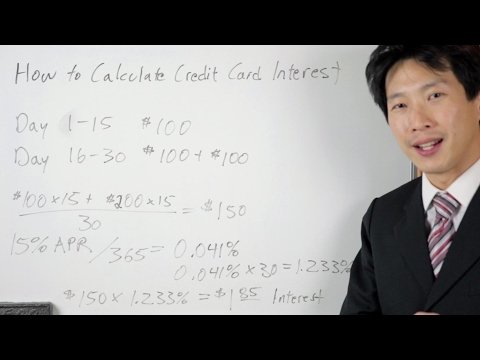 How to Calculate Credit Card Interest
Day 1-15 $100
Day 16-30 $100 + $100
$100 x 15 + $200 x 15
30
= $150
15% APR /365 = 0.041%
0.041% x 30 = 1.233%
$150 x 1.233% = $1.85 Interest